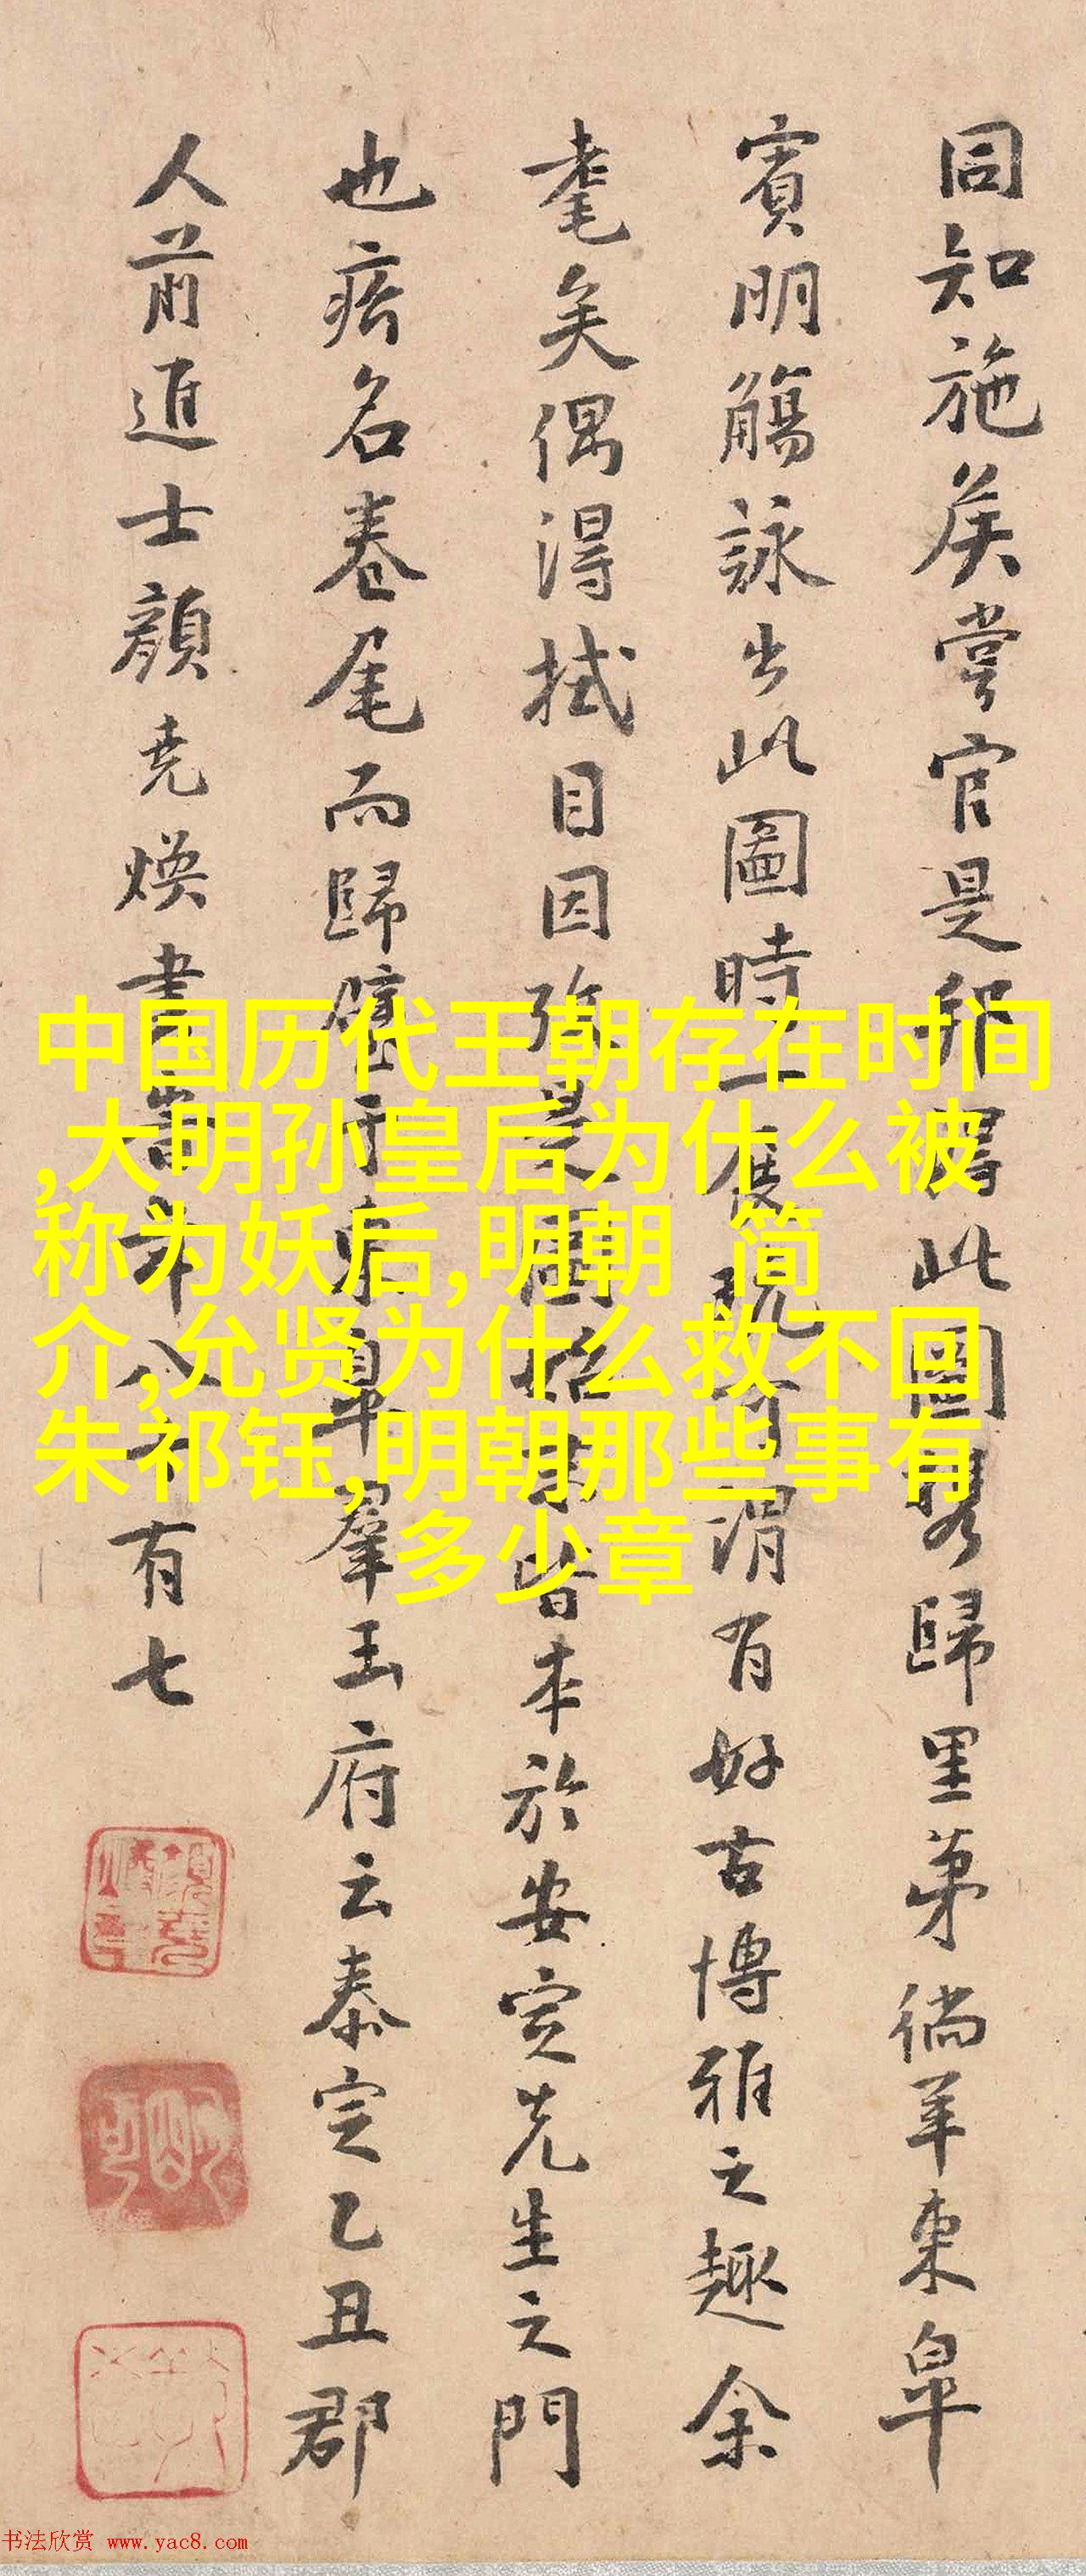 同知施侯嘗官是邦得此圖携歸里第徜羊東皐
賓朋觴詠出此圖時一展玩可謂有好古博雅之趣余
耄矣偶得拭目因
本於安定先生之門
也瘩名卷尾而歸
羣玉府云泰定乙丑郡
人前進士顔堯煥書
八十有七
中国历代王朝存在时间
,大明孙皇后为什么被
称为妖后,明朝 简
介,允贤为什么救不回
朱祁钰,明朝那些事有
多少章
书法欣赏 www.yac8.com